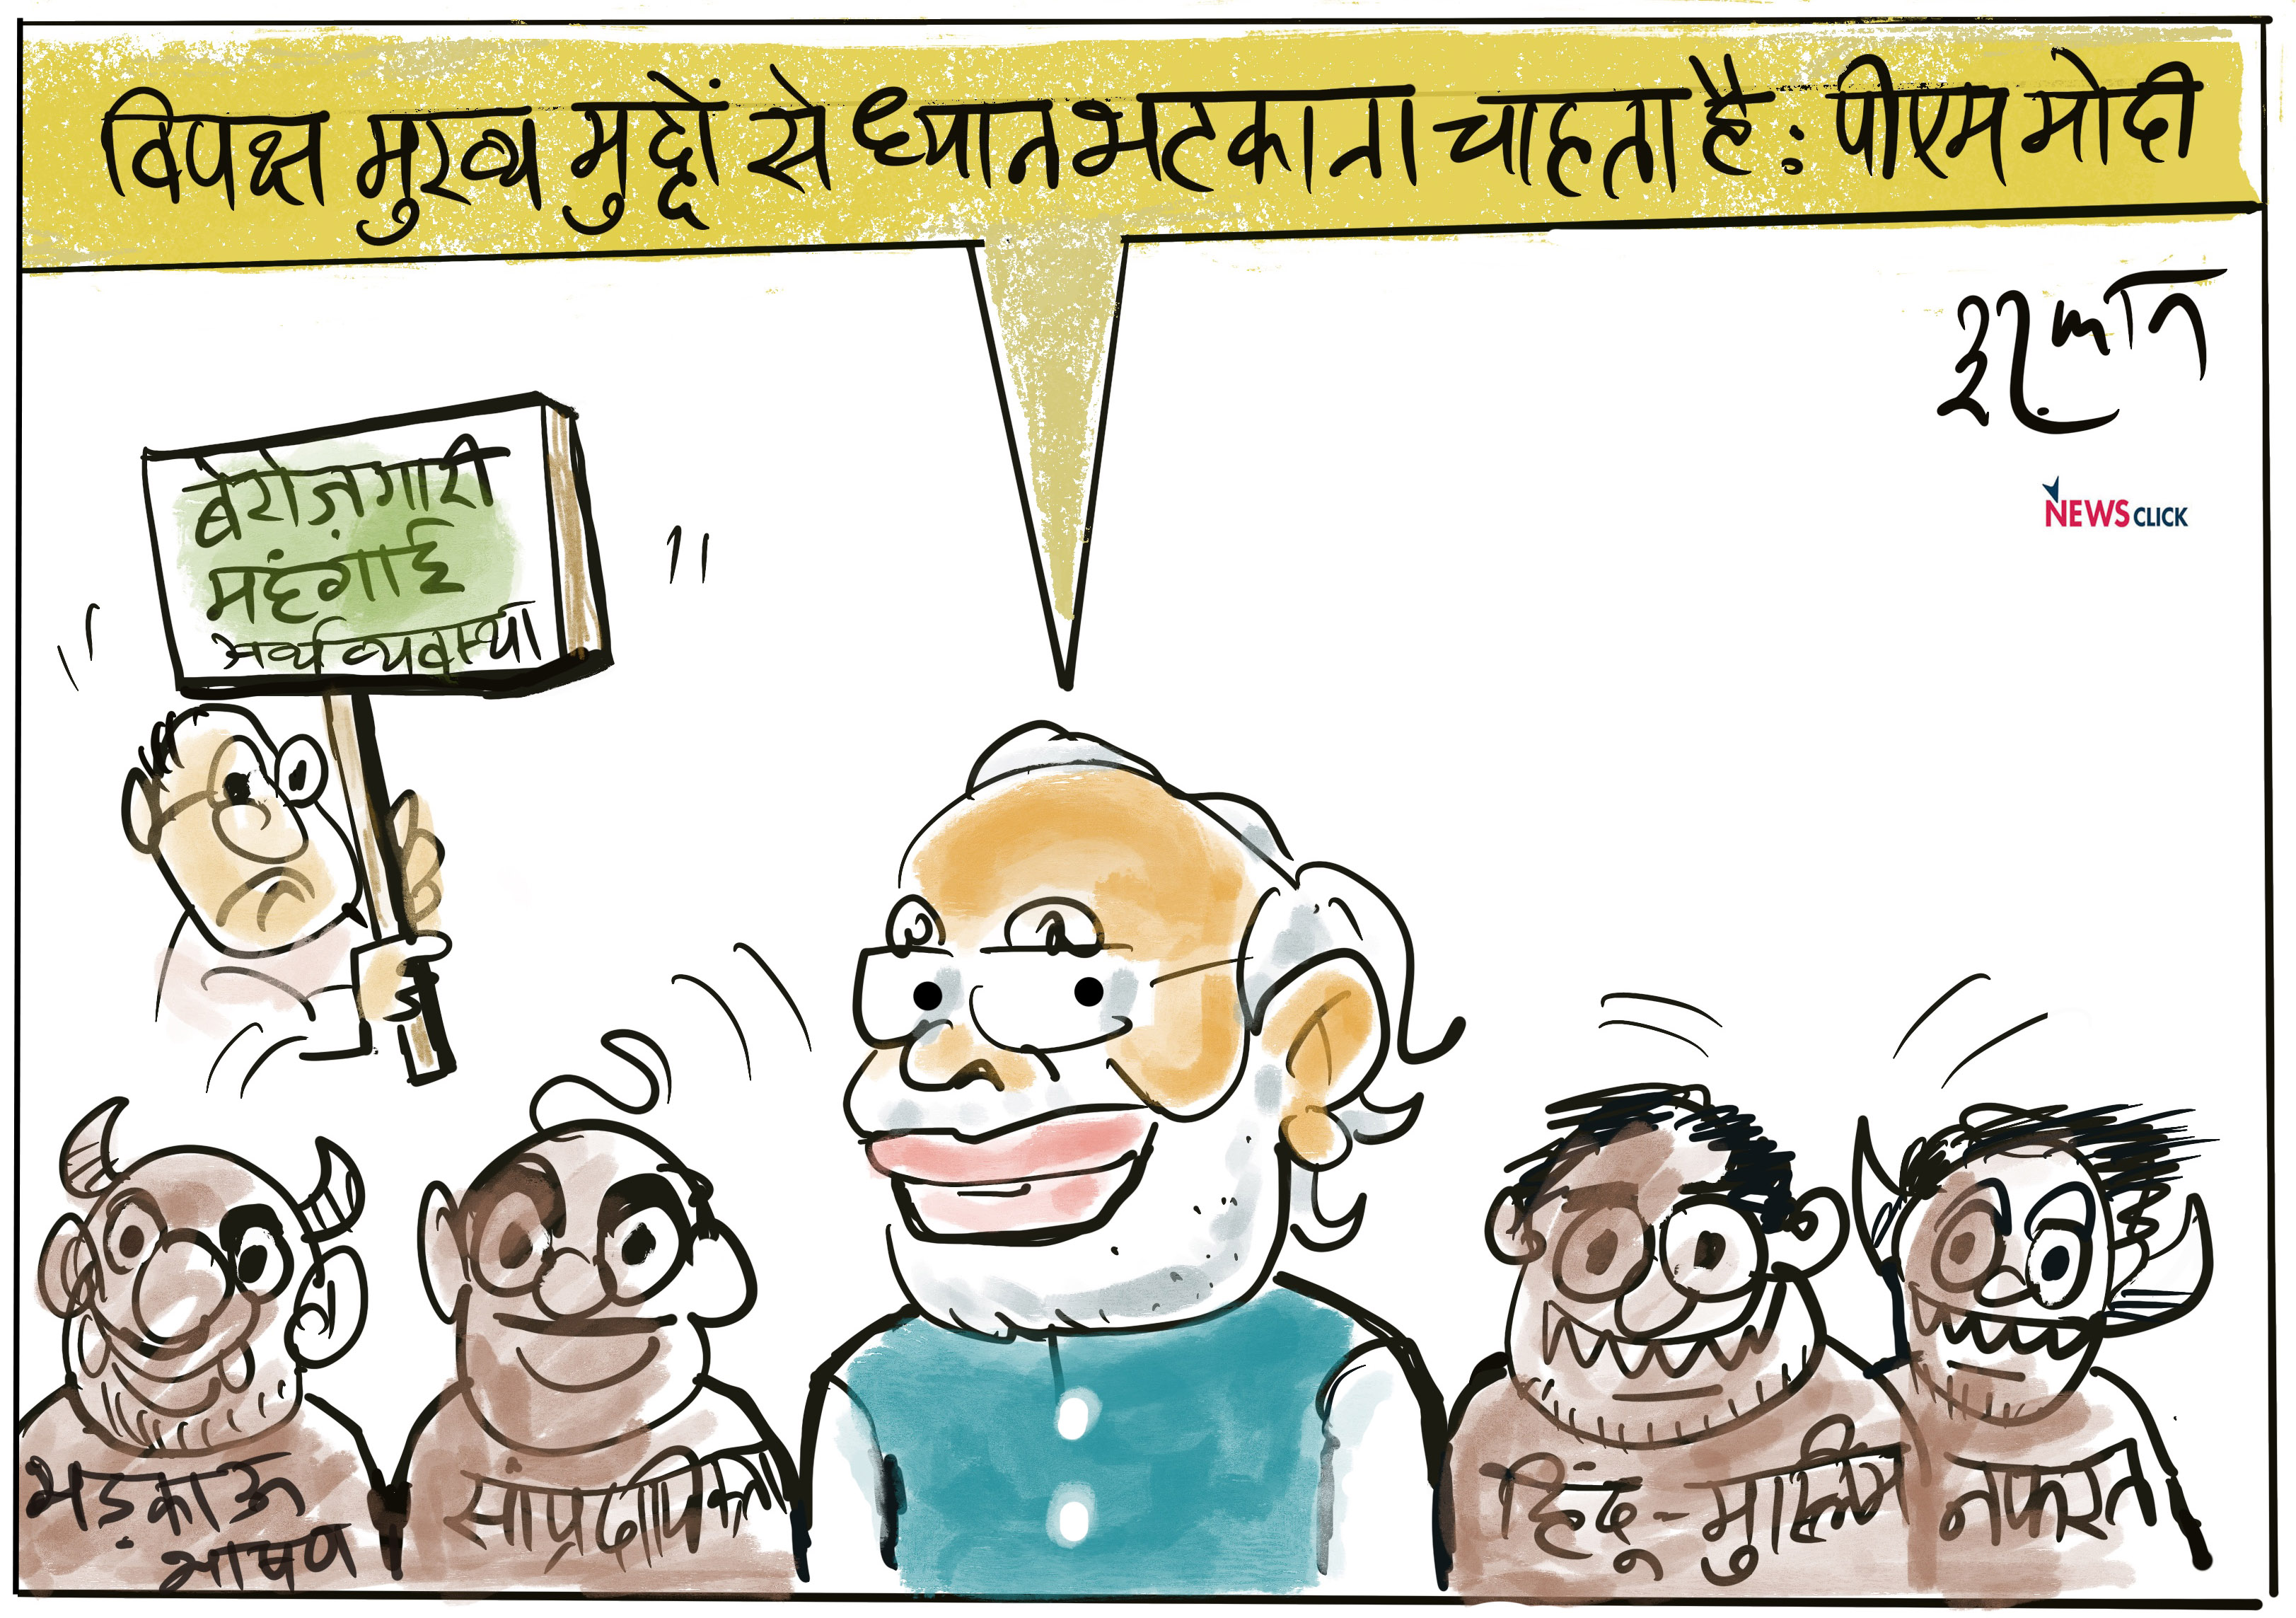 विपक्ष मुख्य मुद्दों से ध्यान भटकाना चाहता है : पीएम मोदी
इरफ़ान
NEWSCLICK
बेरोज़गारी
महंगाई
अर्थव्यवस्था
भड़काऊ
भाषण
सांप्रदायिकता
हिंदू-मुस्लिम
नफ़रत